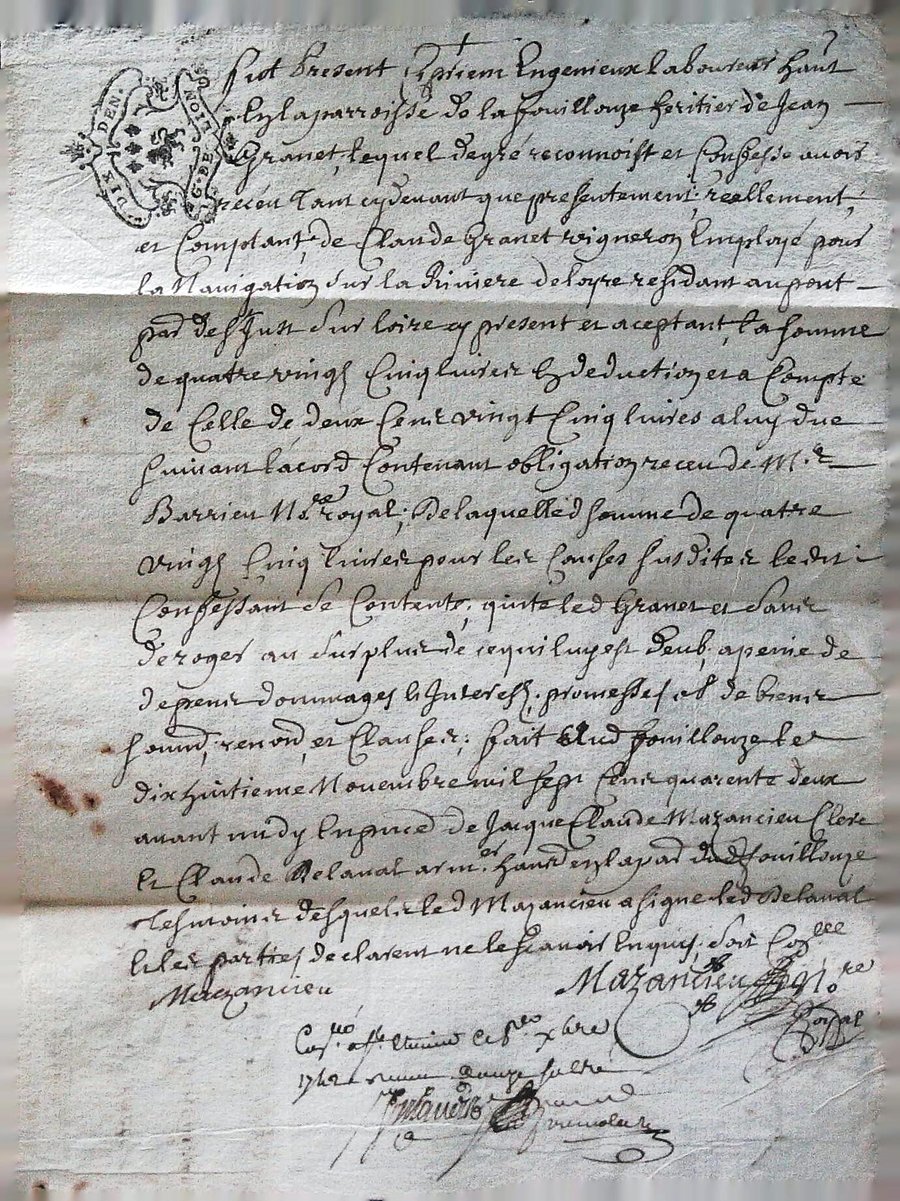 DIX DEN. G. DE LION
fut present Ennemond Engenieux laboureur habt
en la parroisse de la fouillouze heritier de Jean
Granet, lequel de gré reconnoist et Confesse avoir
receu tant cy devant que presentement, reellement,
et Comptant, de Claude Granet voigneron Employé pour
la Navigation sur la Riviere de loyre residant au pont
par de st Just sur loire cy present et aceptant, la somme
de quatre vingt Cinq livres En deduction et a Compte
de Celle de deux Cens vingt Cinq livres a luy due
suivant l'acord Contenant obligation receu de Mr
Barrieu Nore royal; De laquelle d somme de quatre
vingt Cinq livres pour les Causes susdites ledit
Confessant se Contente, quite led Granet et sans
deroger au surplus de ce qui luy est deub, a peine de
depens dommages & Interest, promesses ob de biens
soumd, renond, et Clauses; fait Aud fouillouze le
dix huitieme Novembre mil sept Cens quarente deux
avant midy En pnced de Jacque Claude Mazancieu Clerc
Et Claude Delaval armer habd en la par dud fouillouze
tesmoins desquels led Mazancieu a signe led Delaval
& les parties declarent ne le scavoir Enquis, soit Collee
Mazancieu
Mazancieu Nore
Royal
1742 douze sols